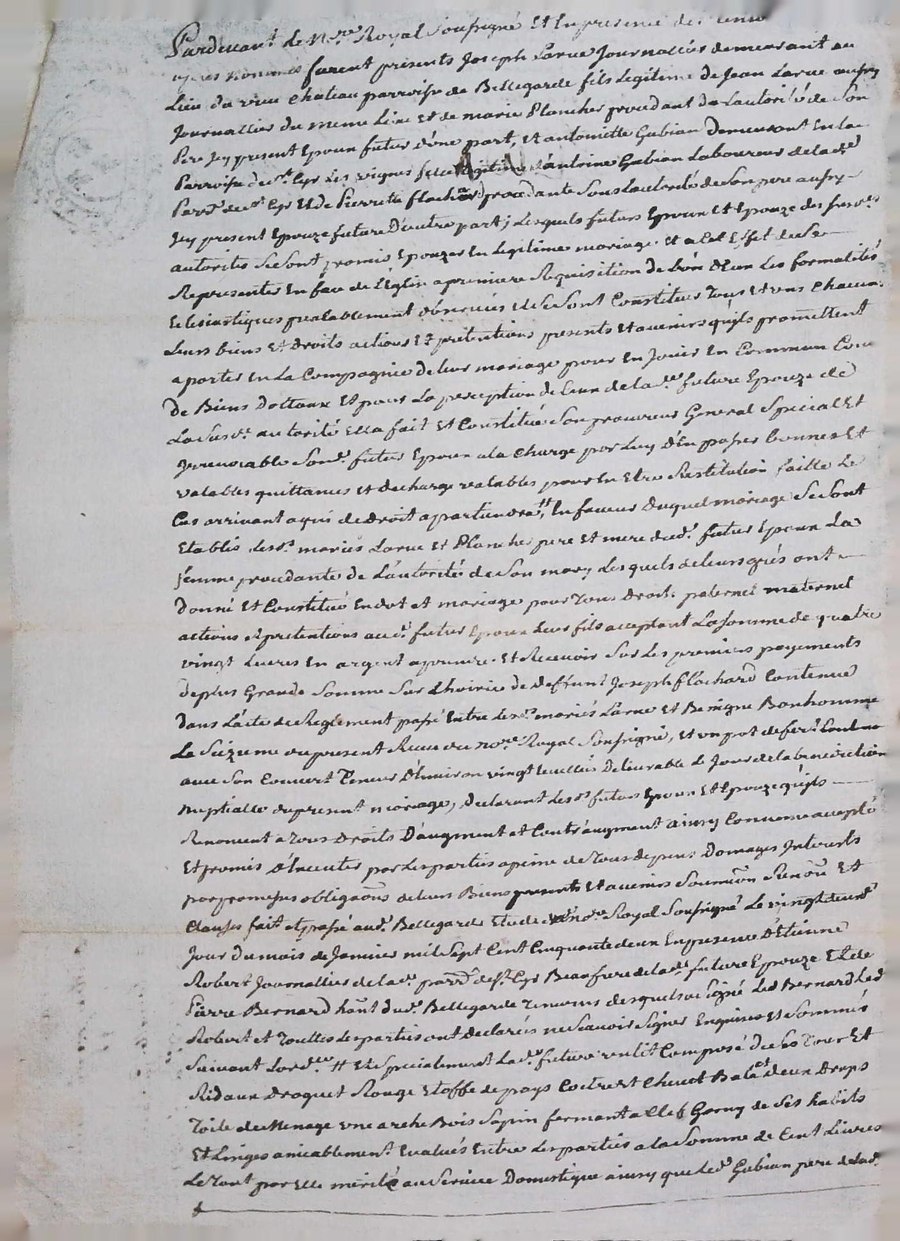 Pardevant le Nre Royal soussigné Et En presence des
nommés furent présents Joseph Larue Journallier demeurant au
Lieu du vieu Chateau parroisse de Bellegarde fils Legitime de Jean Larue aussy
Journallier du meme Lieu Et de marie Plancher procedant de Lautorité de Son
Pere Icy present Epoux futur d'une part, et antoinette Gubian Demeurant En la
Parroisse de st Cyr Les vignes fille Legitime d'antoine Gubian Laboureur de lade
Parrse de st Cyr Et de Pierrette flachard procedante Sous Lautorité de Son pere aussy
Icy present Epouze future D'autre part; Lesquels futurs Epoux Et Epouze des susdes
autorités Se Sont promis Epouzer En Legitime mariage et a Cet Effet de Se
Representer En face de L'Eglise a premiere Requisition de L'un d'Eux Les formalités
Eclesiastiques prealablement observées et Se Sont Constitués Tous Et uns Chacuns
Leurs biens Et Droits actions Et prétentions presents Et avenirs qu'ils promettent
aporter En La Compagnie de leur mariage pour En Jouir En Commun Come
De Biens Dottaux Et pour La perception de Ceux de lade future Epouze de
La Susde autorité Ella fait Et Constitué Son procureur General Special Et
Irrevocable Sond. futur Epoux a la Charge par Luy d'En passer bonnes Et
valables quittances Et decharge valables pour En Etre Restitution faitte Le
Cas arrivant a qui de droit apartiendra, # En faveur Duquel mariage Se Sont
Etablis lesds mariés Larue Et Plancher pere Et mere dud. futur Epoux La
femme procedante de L'autorité de Son mary Lesquels de leurs grés ont
Donné Et Constitué En dot et mariage pour Tous Droits paternel maternel
actions Et prétentions aud. futur Epoux Leur fils acceptant La Somme de quatre
vingt Livres En argent a prendre Et Recevoir Sur Les premiers payements
de plus Grande Somme Sur L'hoirie de deffunt Joseph Flachard Contenue
Dans L'acte de Reglement passé Entre lesds mariés Larue Et Benigne Bonhomme
Le Seizieme du present Receu du nore Royal Soussigné, et un pot de fer
avec Son Couvert Teneur D'Environ vingt Ecuelles Delivrable Le Jour de la benediction
nuptialle du present mariage, Declarant lesds futurs Epoux Et Epouze qu'ils
Renoncent a Tous Droits D'augment et Contraugment ainsy Convenu accepté
Et promis D'Executer par Les parties a peine de Tous depens Domages Interests
par promesses obligaons de leurs Biens presents Et avenirs Soumission Renons Et
Clauses fait et passé aud. Bellegarde Etude du nore Royal Soussigné Le vingt deuxe
Jour du mois de Janvier mil Sept Cent Cinquante deux En presence D'Etienne
Robert Journallier de lade parrse de st Cyr Beaufrere de lade future Epouze Et de
Pierre Bernard hant dud. Bellegarde Temoins desquels a Signé Led Bernard Led
Robert et Touttes Les parties ont Declarés ne Scavoir Signer Enquises Et Sommés
Suivant Lordce # Et Specialement Lade future un lit Composé de Son Tour Et
Ridaux Droguet Rouge Etoffe de pays Coitre Et Chevet deux Draps
Toile de Menage une arche Bois Sapin fermant a Clef Garny de Ses habits
Et Linges amicablement Evalués Entre Les parties a la Somme de Cent Livres
Le Tout par Elle merité au Service Domestique ainsy que Led. Gubian pere de lade